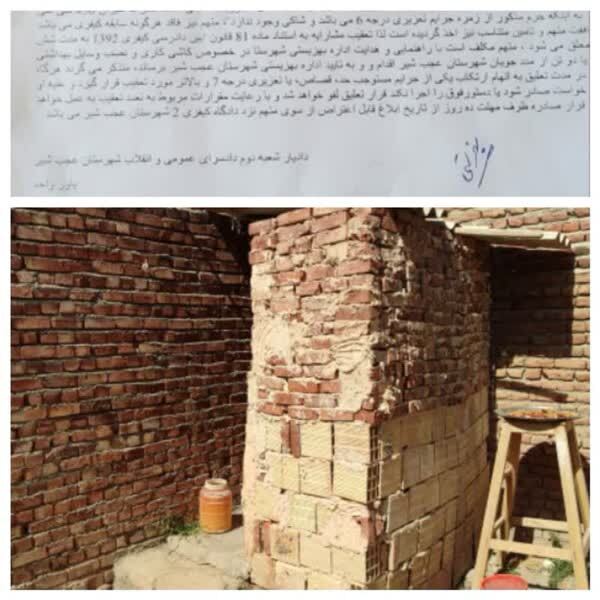 به اینکه جرم مذکور از زمره جرایم تعزیری درجه 6 می باشد و شاکی وجود ندارد ، متهم نیز فاقد هرگونه سابقه کیفری می باشد
متهم و تامین متناسب نیز اخذ گردیده است لذا تعقیب مشارالیه به استناد ماده 81 قانون آیین دادرسی کیفری 1392 به مدت شش
معلق می شود ، متهم مکلف است با راهنمایی و هدایت اداره بهزیستی شهرستان در خصوص کاشی کاری و نصب وسایل بهداشتی
با دو تن از مدد جویان شهرستان عجب شیر اقدام و به تایید اداره بهزیستی شهرستان عجب شیر برساند، متذکر می گردد هرگاه
در مدت تعلیق به اتهام ارتکاب یکی از جرایم مستوجب حد، قصاص، یا تعزیری درجه 7 و بالاتر مورد تعقیب قرار گیرد و علیه او
خواست صادر شود یا دستور فوق را اجرا نکند قرار تعلیق لغو خواهد شد و با رعایت مقررات مربوط به تعدد تعقیب به عمل خواهد
قرار صادره ظرف مهلت ده روز از تاریخ ابلاغ قابل اعتراض از سوی متهم نزد دادگاه کیفری 2 شهرستان عجب شیر می باشد
دادیار شعبه دوم دادسرای عمومی و انقلاب شهرستان عجب شیر